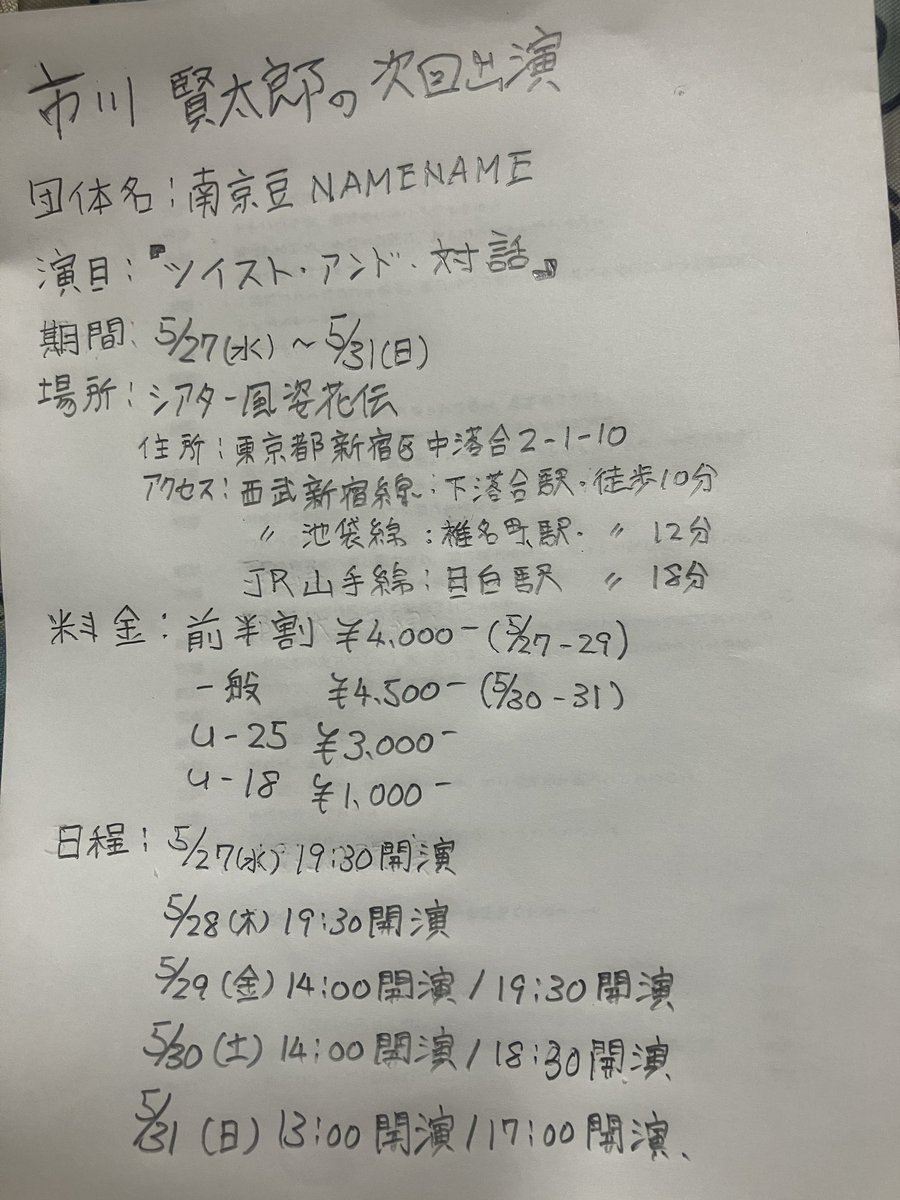 市川 賢太郎の次回出演
団体名：南京豆 NAMENAME
演目：『ツイスト・アンド・対話』
期間 5/27(水)～5/31(日)
場所：シアター風姿花伝
住所：東京都新宿区中落合2-1-10
アクセス：西武新宿線：下落合駅・徒歩10分
〃 池袋線：椎名町駅・〃 12分
JR山手線：目白駅 〃 18分
料金：前半割 ¥4.000-(5/27-29)
一般 ¥4.500-(5/30-31)
U-25 ¥3.000-
U-18 ¥1.000-
日程：5/27(水) 19:30開演
5/28(木) 19:30開演
5/29(金) 14:00開演/19:30開演
5/30(土) 14:00開演/18:30開演
5/31(日) 13:00開演/17:00開演、